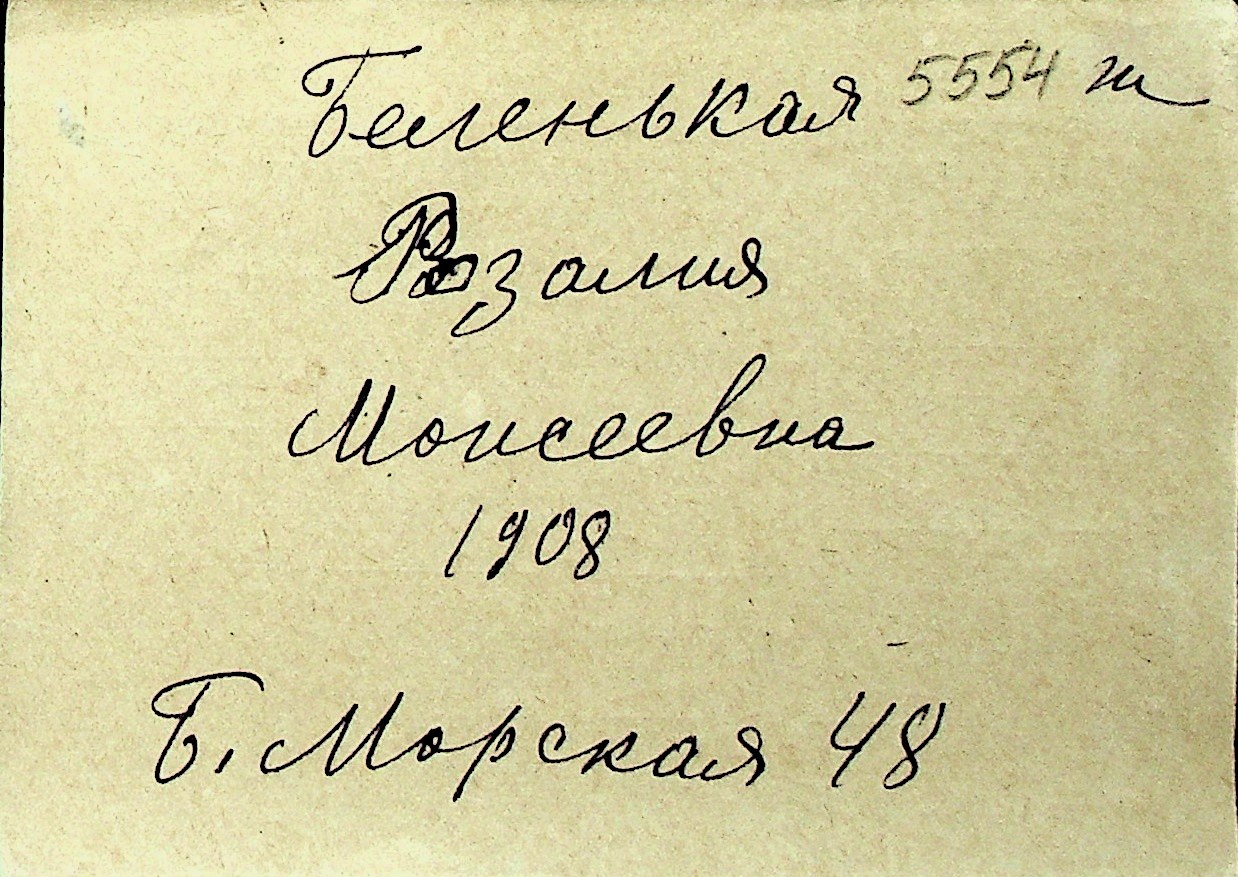 Беленькая 5554 ж
Розалия
Моисеевна
1908
Б. Морская 48